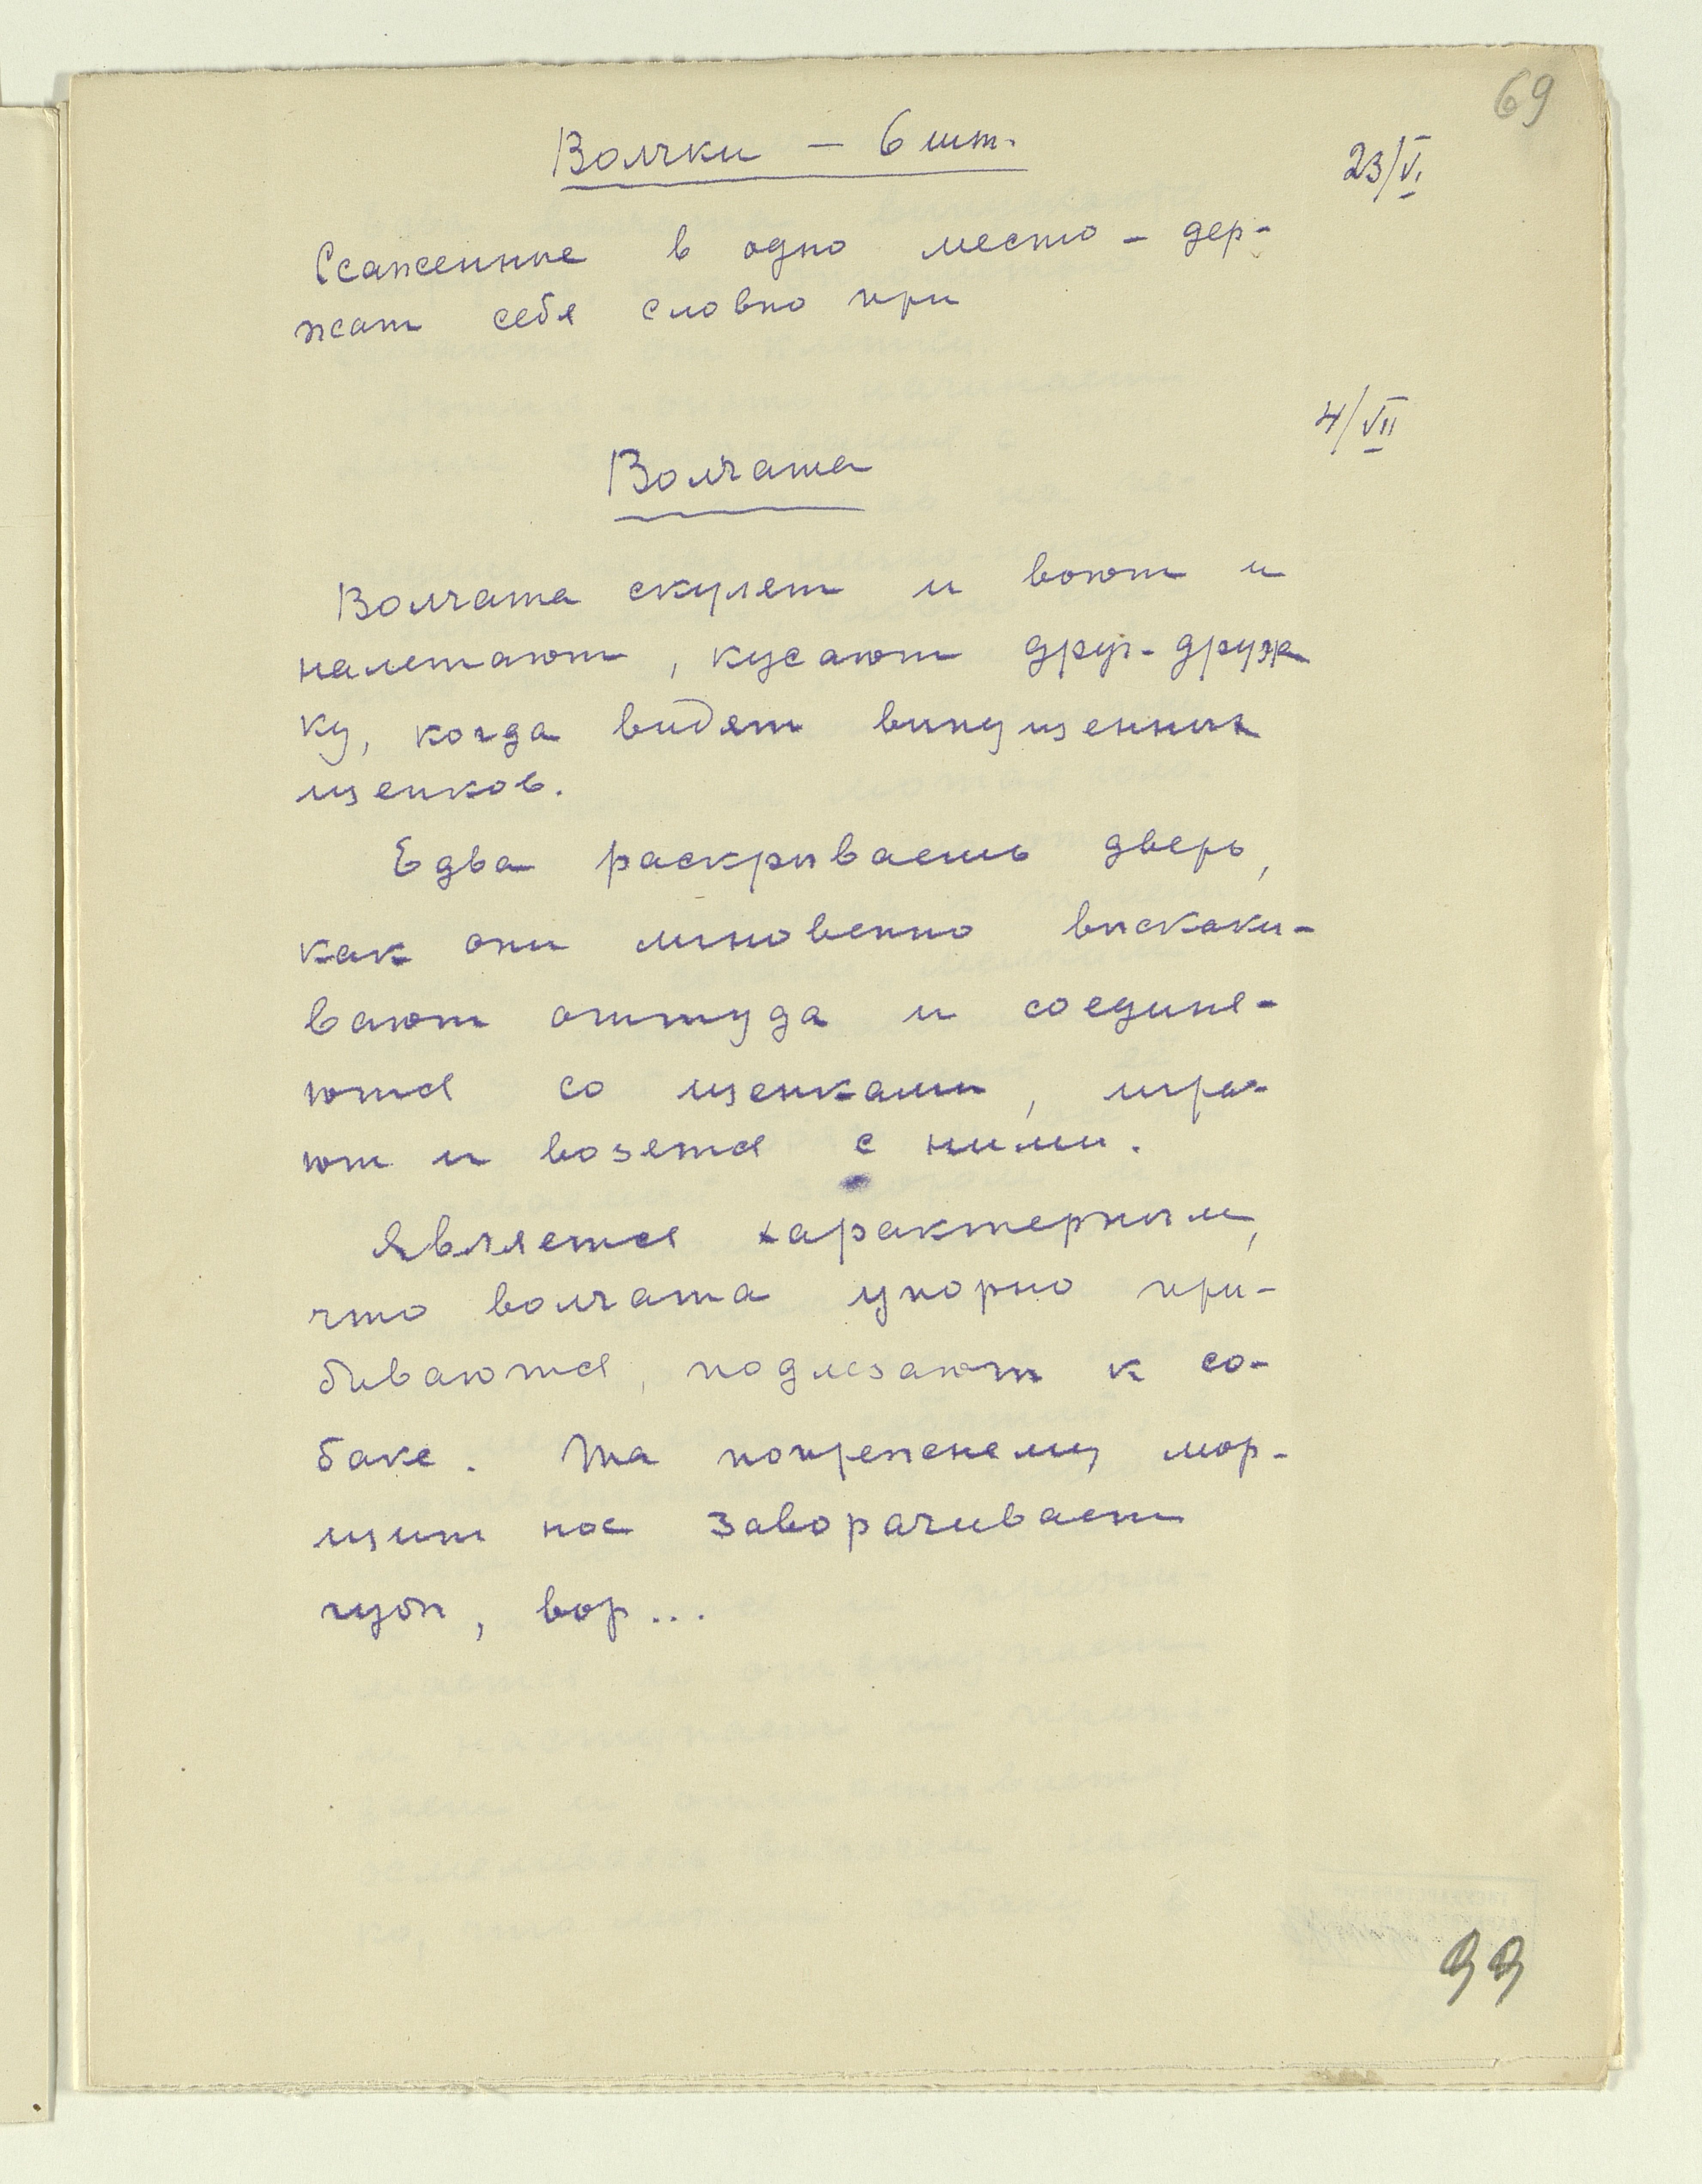 69
Волчки – 6 шт.
23/VI
Ссаженные в одно место – дер-
жат себя словно при
4/VII
Волчата
Волчата скулят и воют и
налетают, кусают друг-друж
ку, когда видят выпущенных
щенков.
Едва раскрываешь дверь,
как они мгновенно выскаки-
вают оттуда и соединя-
ются со щенками, игра-
ют и возятся с ними.
Является характерным,
что волчата упорно при-
биваются, подлезают к со-
баке. Та попрежнему мор-
щит нос заворачивает
губы, вор...
99